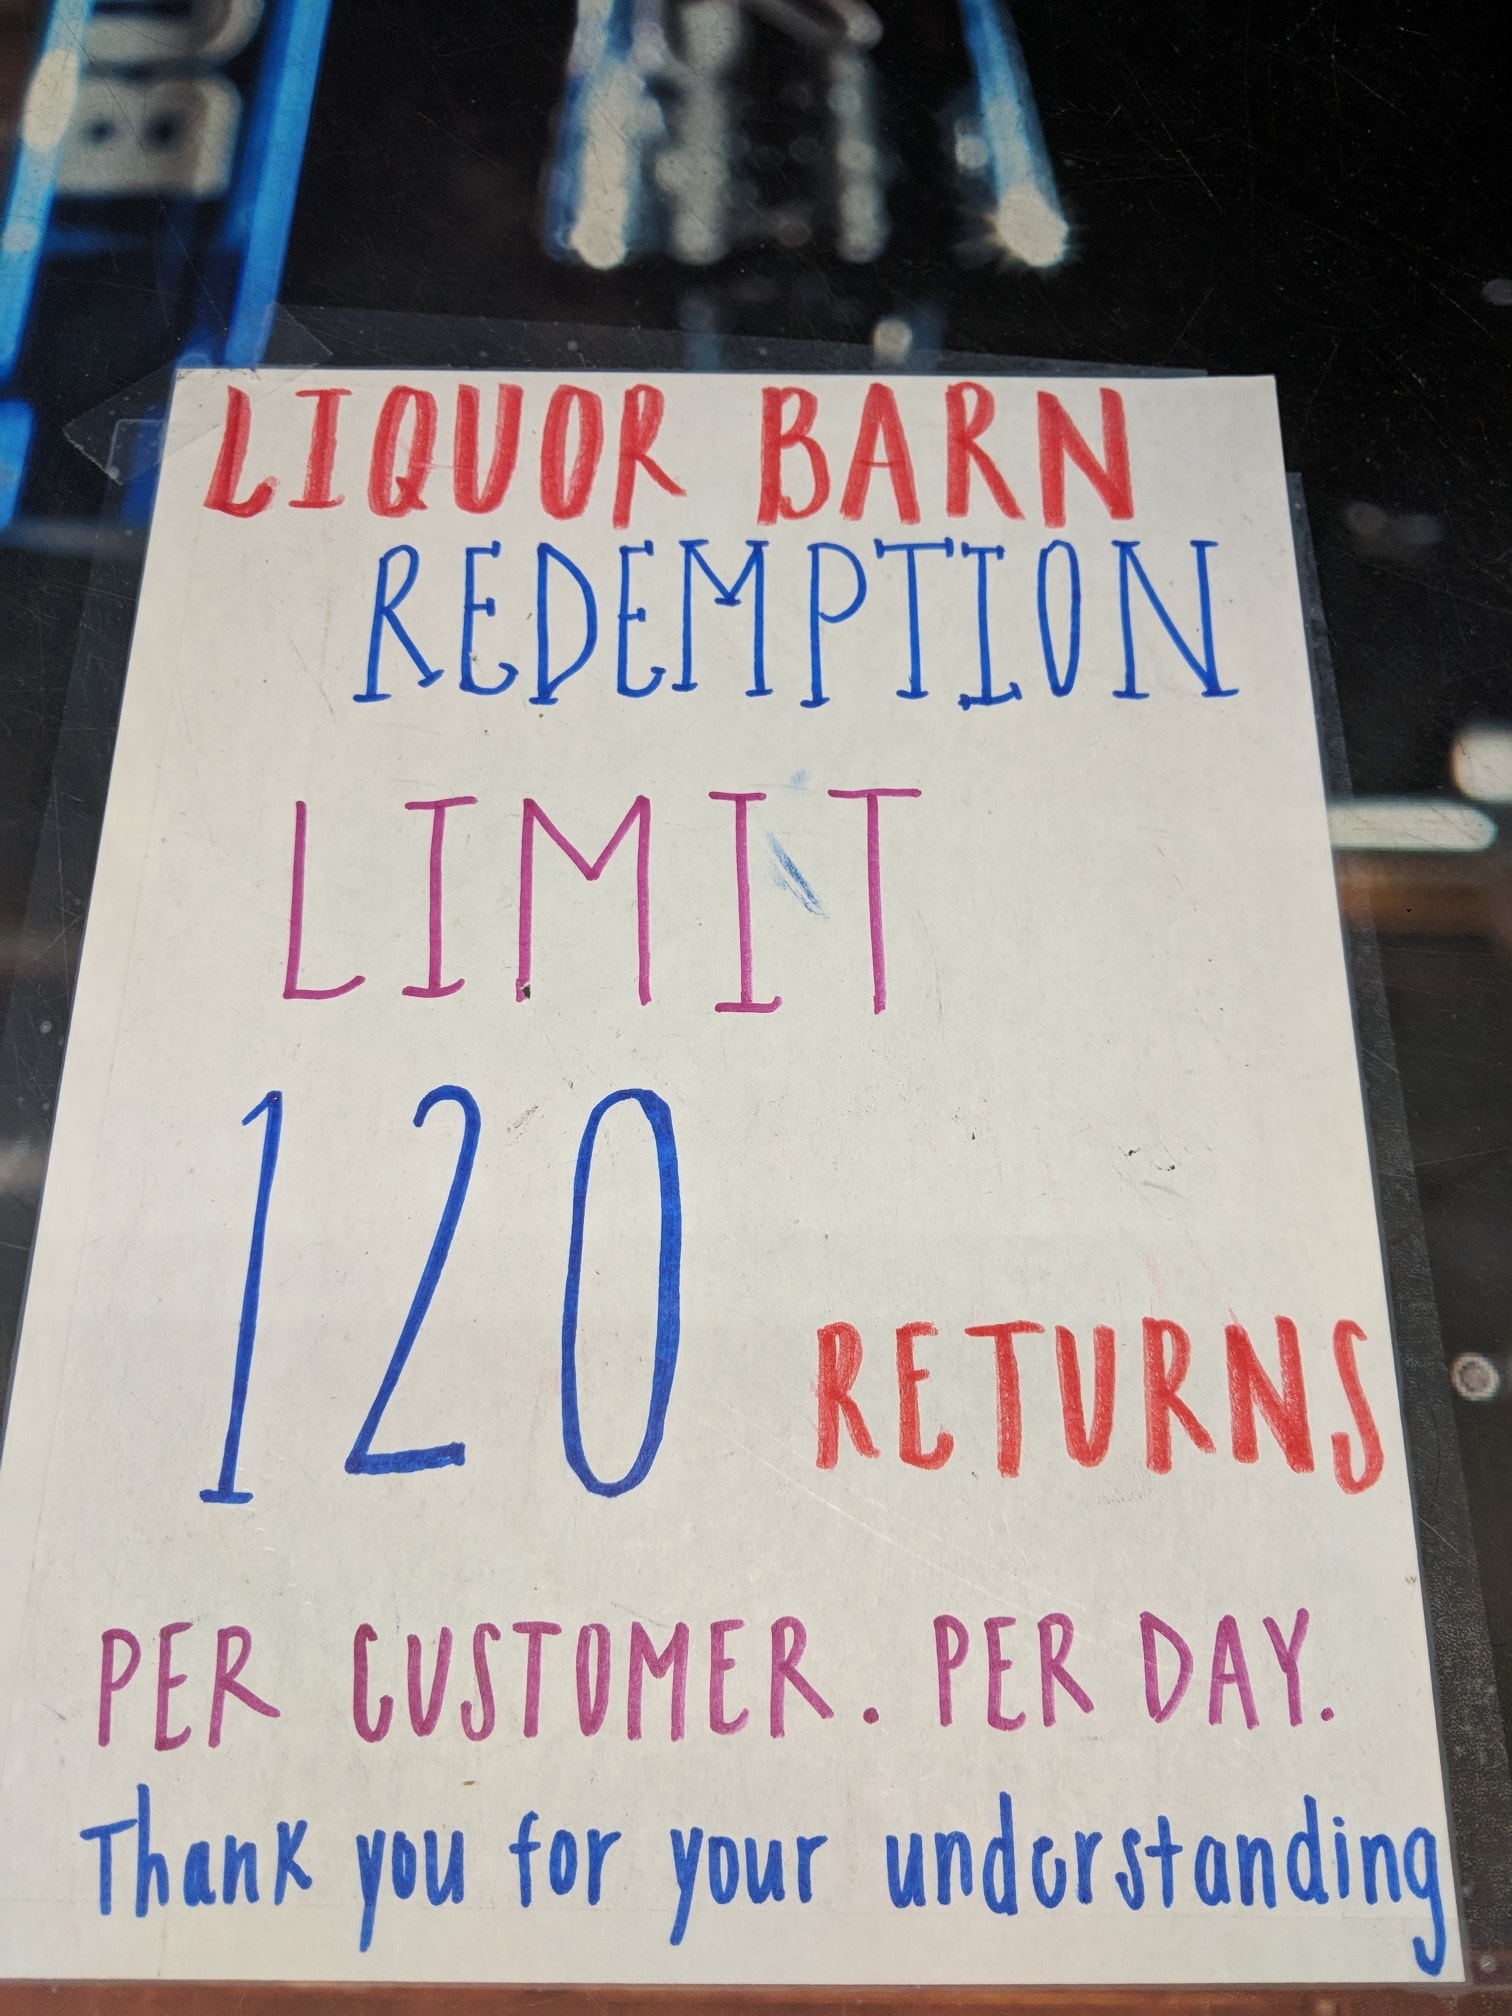 LIQUOR BARN
REDEMPTION
LIMIT
120 RETURNS
PER CUSTOMER. PER DAY.
Thank you for your understanding